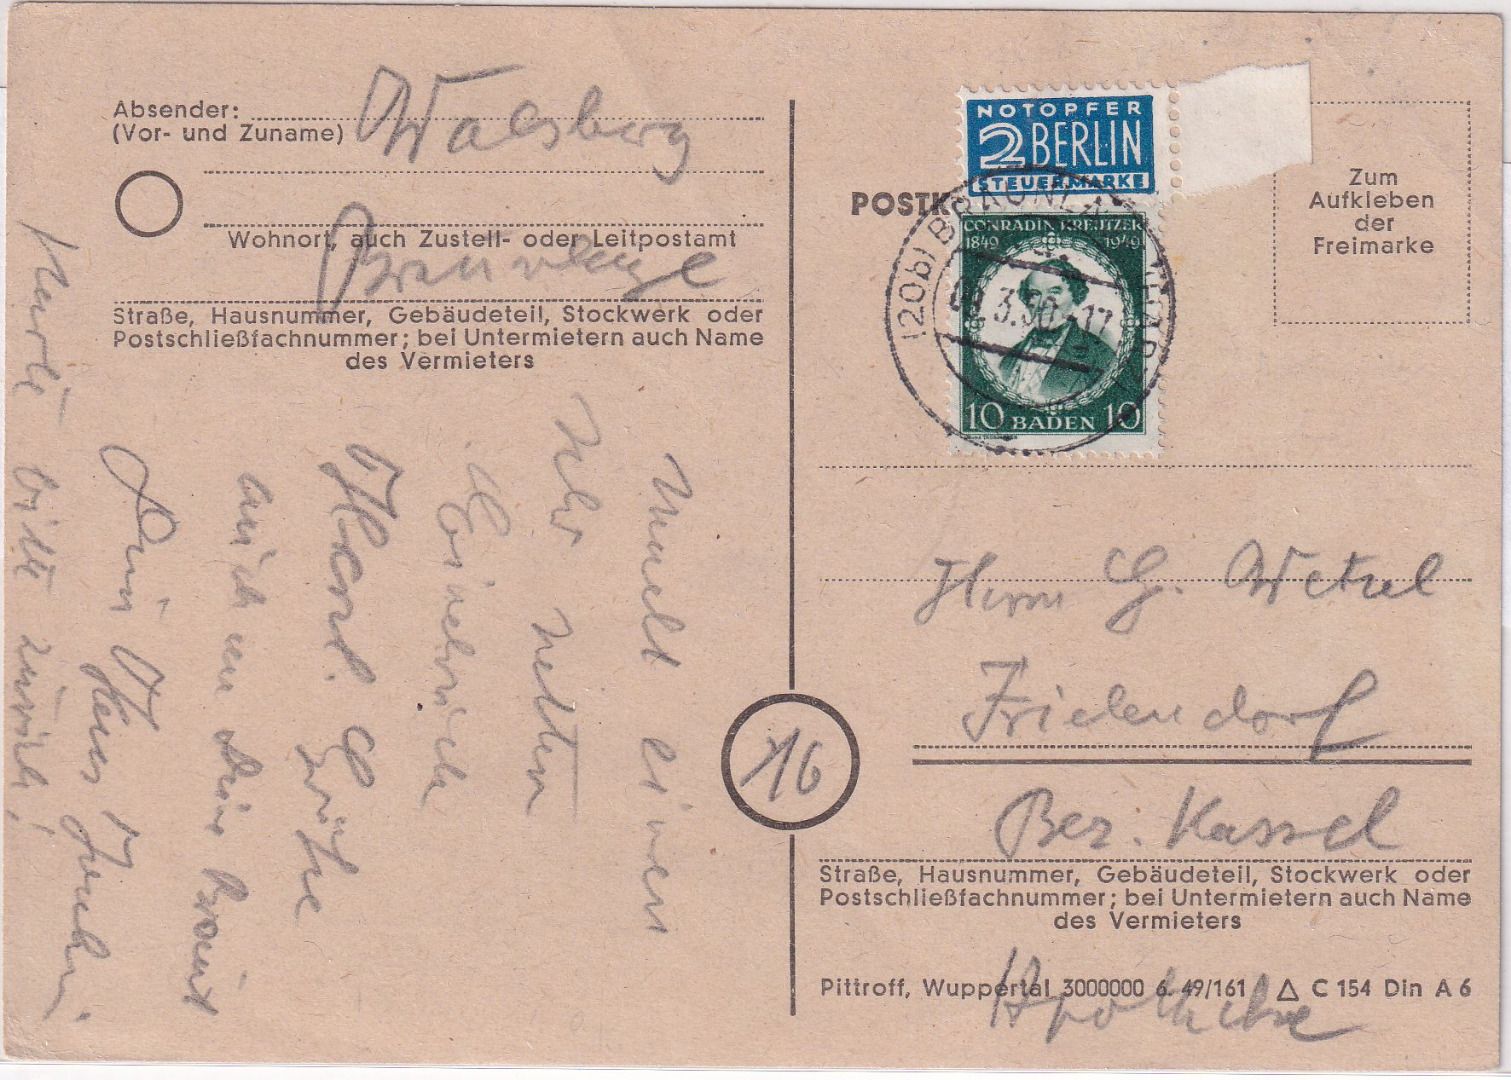 Absender:
(Vor- und Zuname)
Walsberg
Wohnort, auch Zustell- oder Leitpostamt
Braunlage
Straße, Hausnummer, Gebäudeteil, Stockwerk oder
Postschließfachnummer; bei Untermietern auch Name
des Vermieters
macht einen
sehr netten
Eindruck
Herzl. Grüße
auch an Deine Braut
Dein
Karte bitte zurück!
NOTOPFER
2 BERLIN
STEUERMARKE
POSTK
(20b) BRAUNLA
3.50.-17
CONRADIN KREUTZER
1849 1949
10 BADEN 10
Zum
Aufkleben
der
Freimarke
Herrn G. Wetzel
Frielendorf
16
Bez. Kassel
Straße, Hausnummer, Gebäudeteil, Stockwerk oder
Postschließfachnummer; bei Untermietern auch Name
des Vermieters
Apotheke
Pittroff, Wuppertal 3000000 6. 49/161 △ C 154 Din A 6